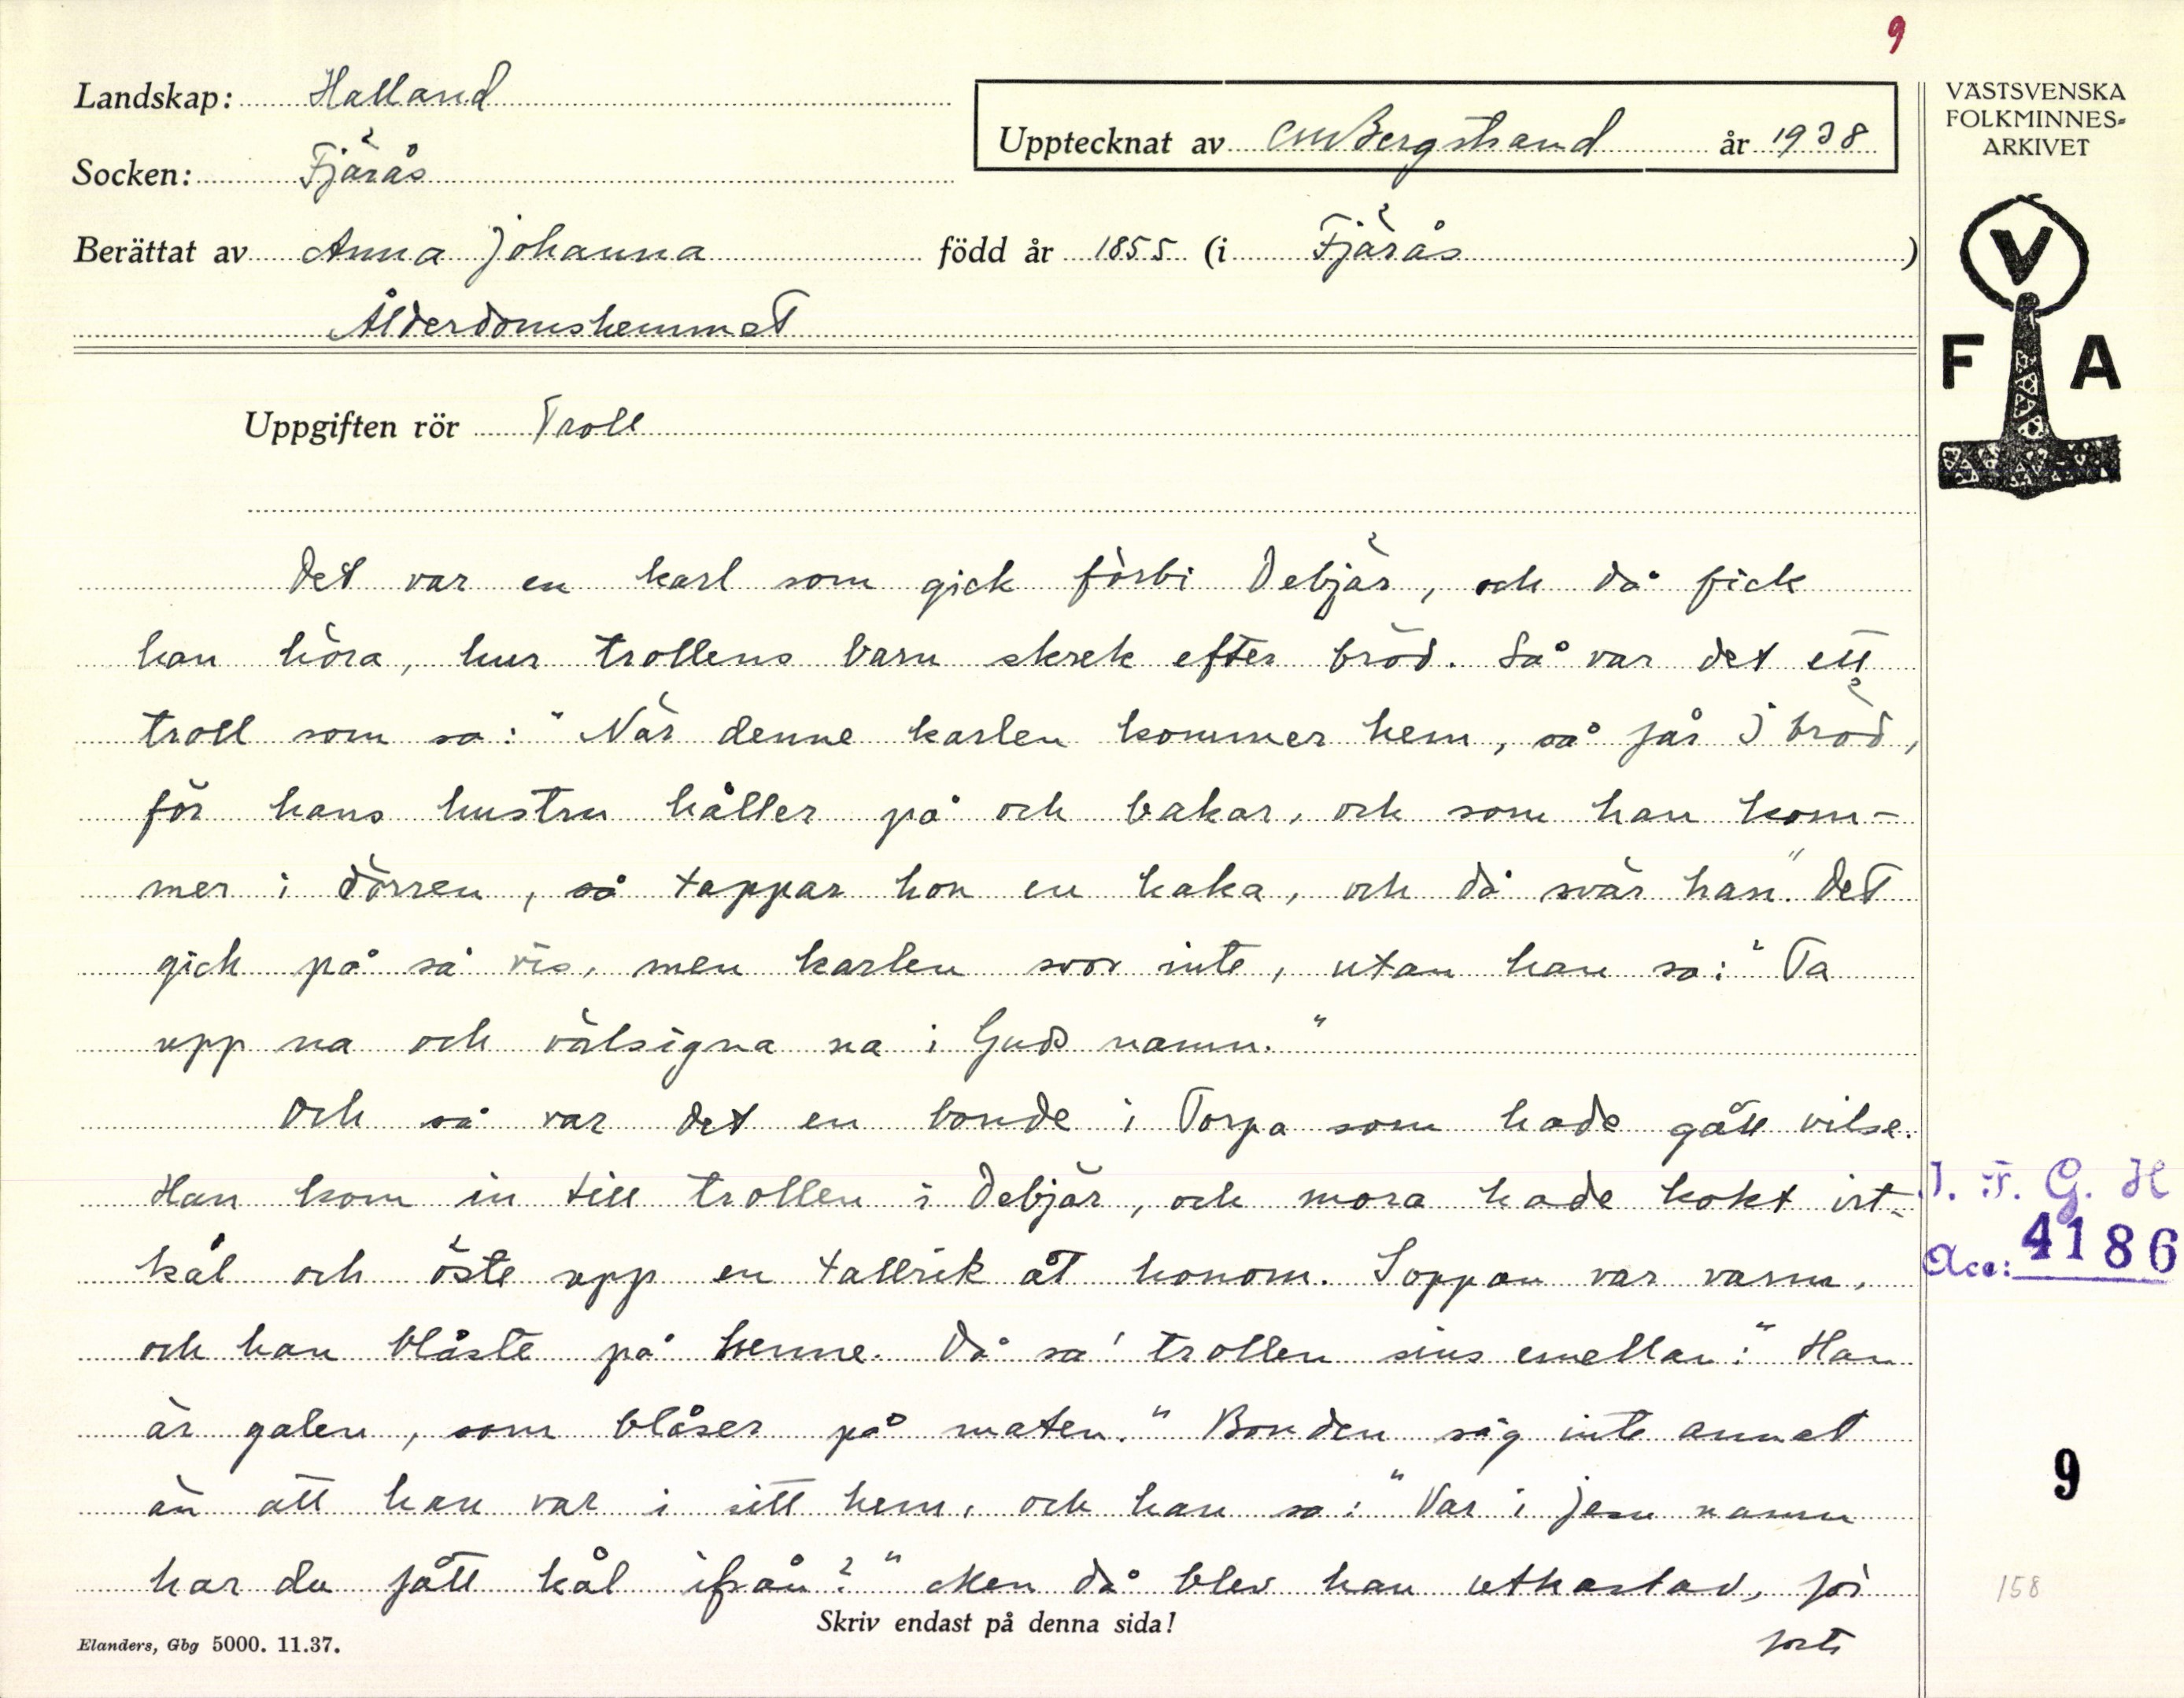 9
Landskap: Halland
Upptecknat av CM Bergstrand år 1938
VÄSTSVENSKA
FOLKMINNES-
ARKIVET
Socken: Fjärås
Berättat av Anna Johanna född år 1855 (i Fjärås)
Ålderdomshemmet
V
F A
Uppgiften rör Troll
Det var en karl som gick förbi Debjär, och då fick
han höra, hur trollens barn skrek efter bröd. Så var det ett
troll som sa: "När denne karlen kommer hem, så får I bröd,
för hans hustru håller på och bakar, och som han kom-
mer i dörren, så tappar hon en kaka, och då svär han." Det
gick på så vis, men karlen svor inte, utan han sa: "Ta
upp na och välsigna na i Guds namn."
Och så var det en bonde i Torpa som hade gått vilse.
Han kom in till trollen i Debjär, och mora hade kokt ist-
kål och öste upp en tallrik åt honom. Soppan var varm,
och han blåste på henne. Då sa' trollen sins emellan: "Han
är galen, som blåser på maten." Bonden såg inte annat
än att han var i sitt hem, och han sa: "Var i Jesu namn
har du fått kål ifrån?" Men då blev han utkastad, för
Skriv endast på denna sida!
forts
Elanders, Gbg 5000. 11.37.
I. F. G. H
Acc: 4186
9
158